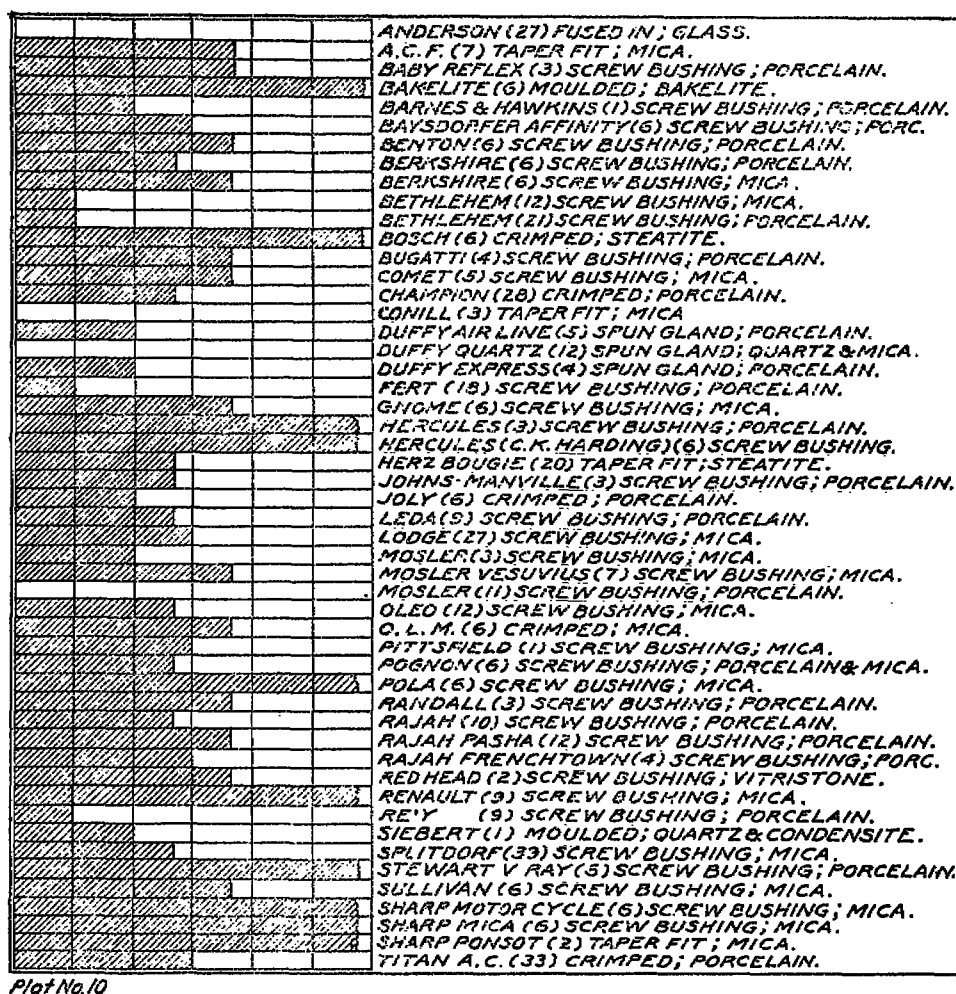 ANDERSON (27) FUSED IN; GLASS.
A.C.F. (7) TAPER FIT; MICA.
BABY REFLEX (3) SCREW BUSHING; PORCELAIN.
BAKELITE (6) MOULDED; BAKELITE.
BARNES & HAWKINS (1) SCREW BUSHING; PORCELAIN.
BAYSDORFER AFFINITY (6) SCREW BUSHING; PORC.
BENTON (6) SCREW BUSHING; PORCELAIN.
BERKSHIRE (6) SCREW BUSHING; PORCELAIN.
BERKSHIRE (6) SCREW BUSHING; MICA.
BETHLEHEM (12) SCREW BUSHING; MICA.
BETHLEHEM (21) SCREW BUSHING; PORCELAIN.
BOSCH (6) CRIMPED; STEATITE.
BUGATTI (4) SCREW BUSHING; PORCELAIN.
COMET (5) SCREW BUSHING; MICA.
CHAMPION (28) CRIMPED; PORCELAIN.
CONILL (3) TAPER FIT; MICA
DUFFY AIR LINE (5) SPUN GLAND; PORCELAIN.
DUFFY QUARTZ (12) SPUN GLAND; QUARTZ & MICA.
DUFFY EXPRESS (4) SPUN GLAND; PORCELAIN.
FERT (18) SCREW BUSHING; PORCELAIN.
GNOME (6) SCREW BUSHING; MICA.
HERCULES (3) SCREW BUSHING; PORCELAIN.
HERCULES (C.K. HARDING) (6) SCREW BUSHING.
HERZ BOUGIE (20) TAPER FIT; STEATITE.
JOHNS-MANVILLE (3) SCREW BUSHING; PORCELAIN.
JOLY (6) CRIMPED; PORCELAIN.
LEDA (9) SCREW BUSHING; PORCELAIN.
LODGE (27) SCREW BUSHING; MICA.
MOSLER (3) SCREW BUSHING; MICA.
MOSLER VESUVIUS (7) SCREW BUSHING; MICA.
MOSLER (11) SCREW BUSHING; PORCELAIN.
OLEO (12) SCREW BUSHING; MICA.
O.L.M. (6) CRIMPED; MICA.
PITTSFIELD (1) SCREW BUSHING; MICA.
POGNON (6) SCREW BUSHING; PORCELAIN & MICA.
POLA (6) SCREW BUSHING; MICA.
RANDALL (3) SCREW BUSHING; PORCELAIN.
RAJAH (10) SCREW BUSHING; PORCELAIN.
RAJAH PASHA (12) SCREW BUSHING; PORCELAIN.
RAJAH FRENCHTOWN (4) SCREW BUSHING; PORC.
RED HEAD (2) SCREW BUSHING; VITRISTONE.
RENAULT (9) SCREW BUSHING; MICA.
(9) SCREW BUSHING; PORCELAIN.
SIEBERT (1) MOULDED; QUARTZ & CONDENSITE.
SPLITDORF (33) SCREW BUSHING; MICA.
STEWART V RAY (5) SCREW BUSHING; PORCELAIN.
SULLIVAN (6) SCREW BUSHING; MICA.
SHARP MOTOR CYCLE (6) SCREW BUSHING; MICA.
SHARP MICA (6) SCREW BUSHING; MICA.
SHARP PONSOT (2) TAPER FIT; MICA.
TITAN A.C. (33) CRIMPED; PORCELAIN.
Plot No. 10